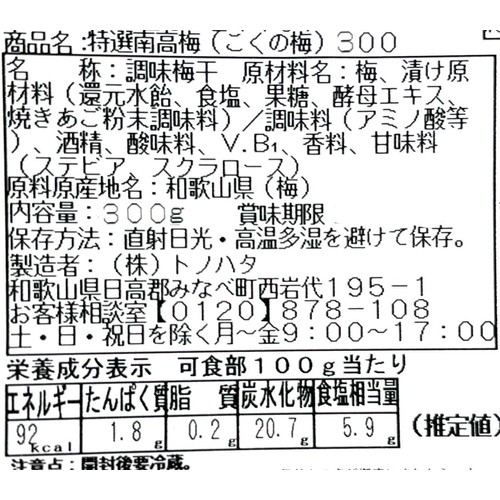 商品名:特選南高梅(こくの梅)300
名　　称:調味梅干　原材料名:梅、漬け原
材料(還元水飴、食塩、果糖、酵母エキス、
焼きあご粉末調味料)/調味料(アミノ酸等
)、酒精、酸味料、V.B₁、香料、甘味料
(ステビア、スクラロース)
原料原産地名:和歌山県(梅)
内容量:300g　　賞味期限
保存方法:直射日光・高温多湿を避けて保存。
製造者:(株)トノハタ
和歌山県日高郡みなべ町西岩代195-1
お客様相談室【0120】878-108
土・日・祝日を除く月~金9:00~17:00
栄養成分表示　可食部100g当たり
エネルギー たんぱく質 脂質 炭水化物 食塩相当量
92kcal 1.8g 0.2g 20.7g 5.9g (推定値)
注意点:開封後要冷蔵。